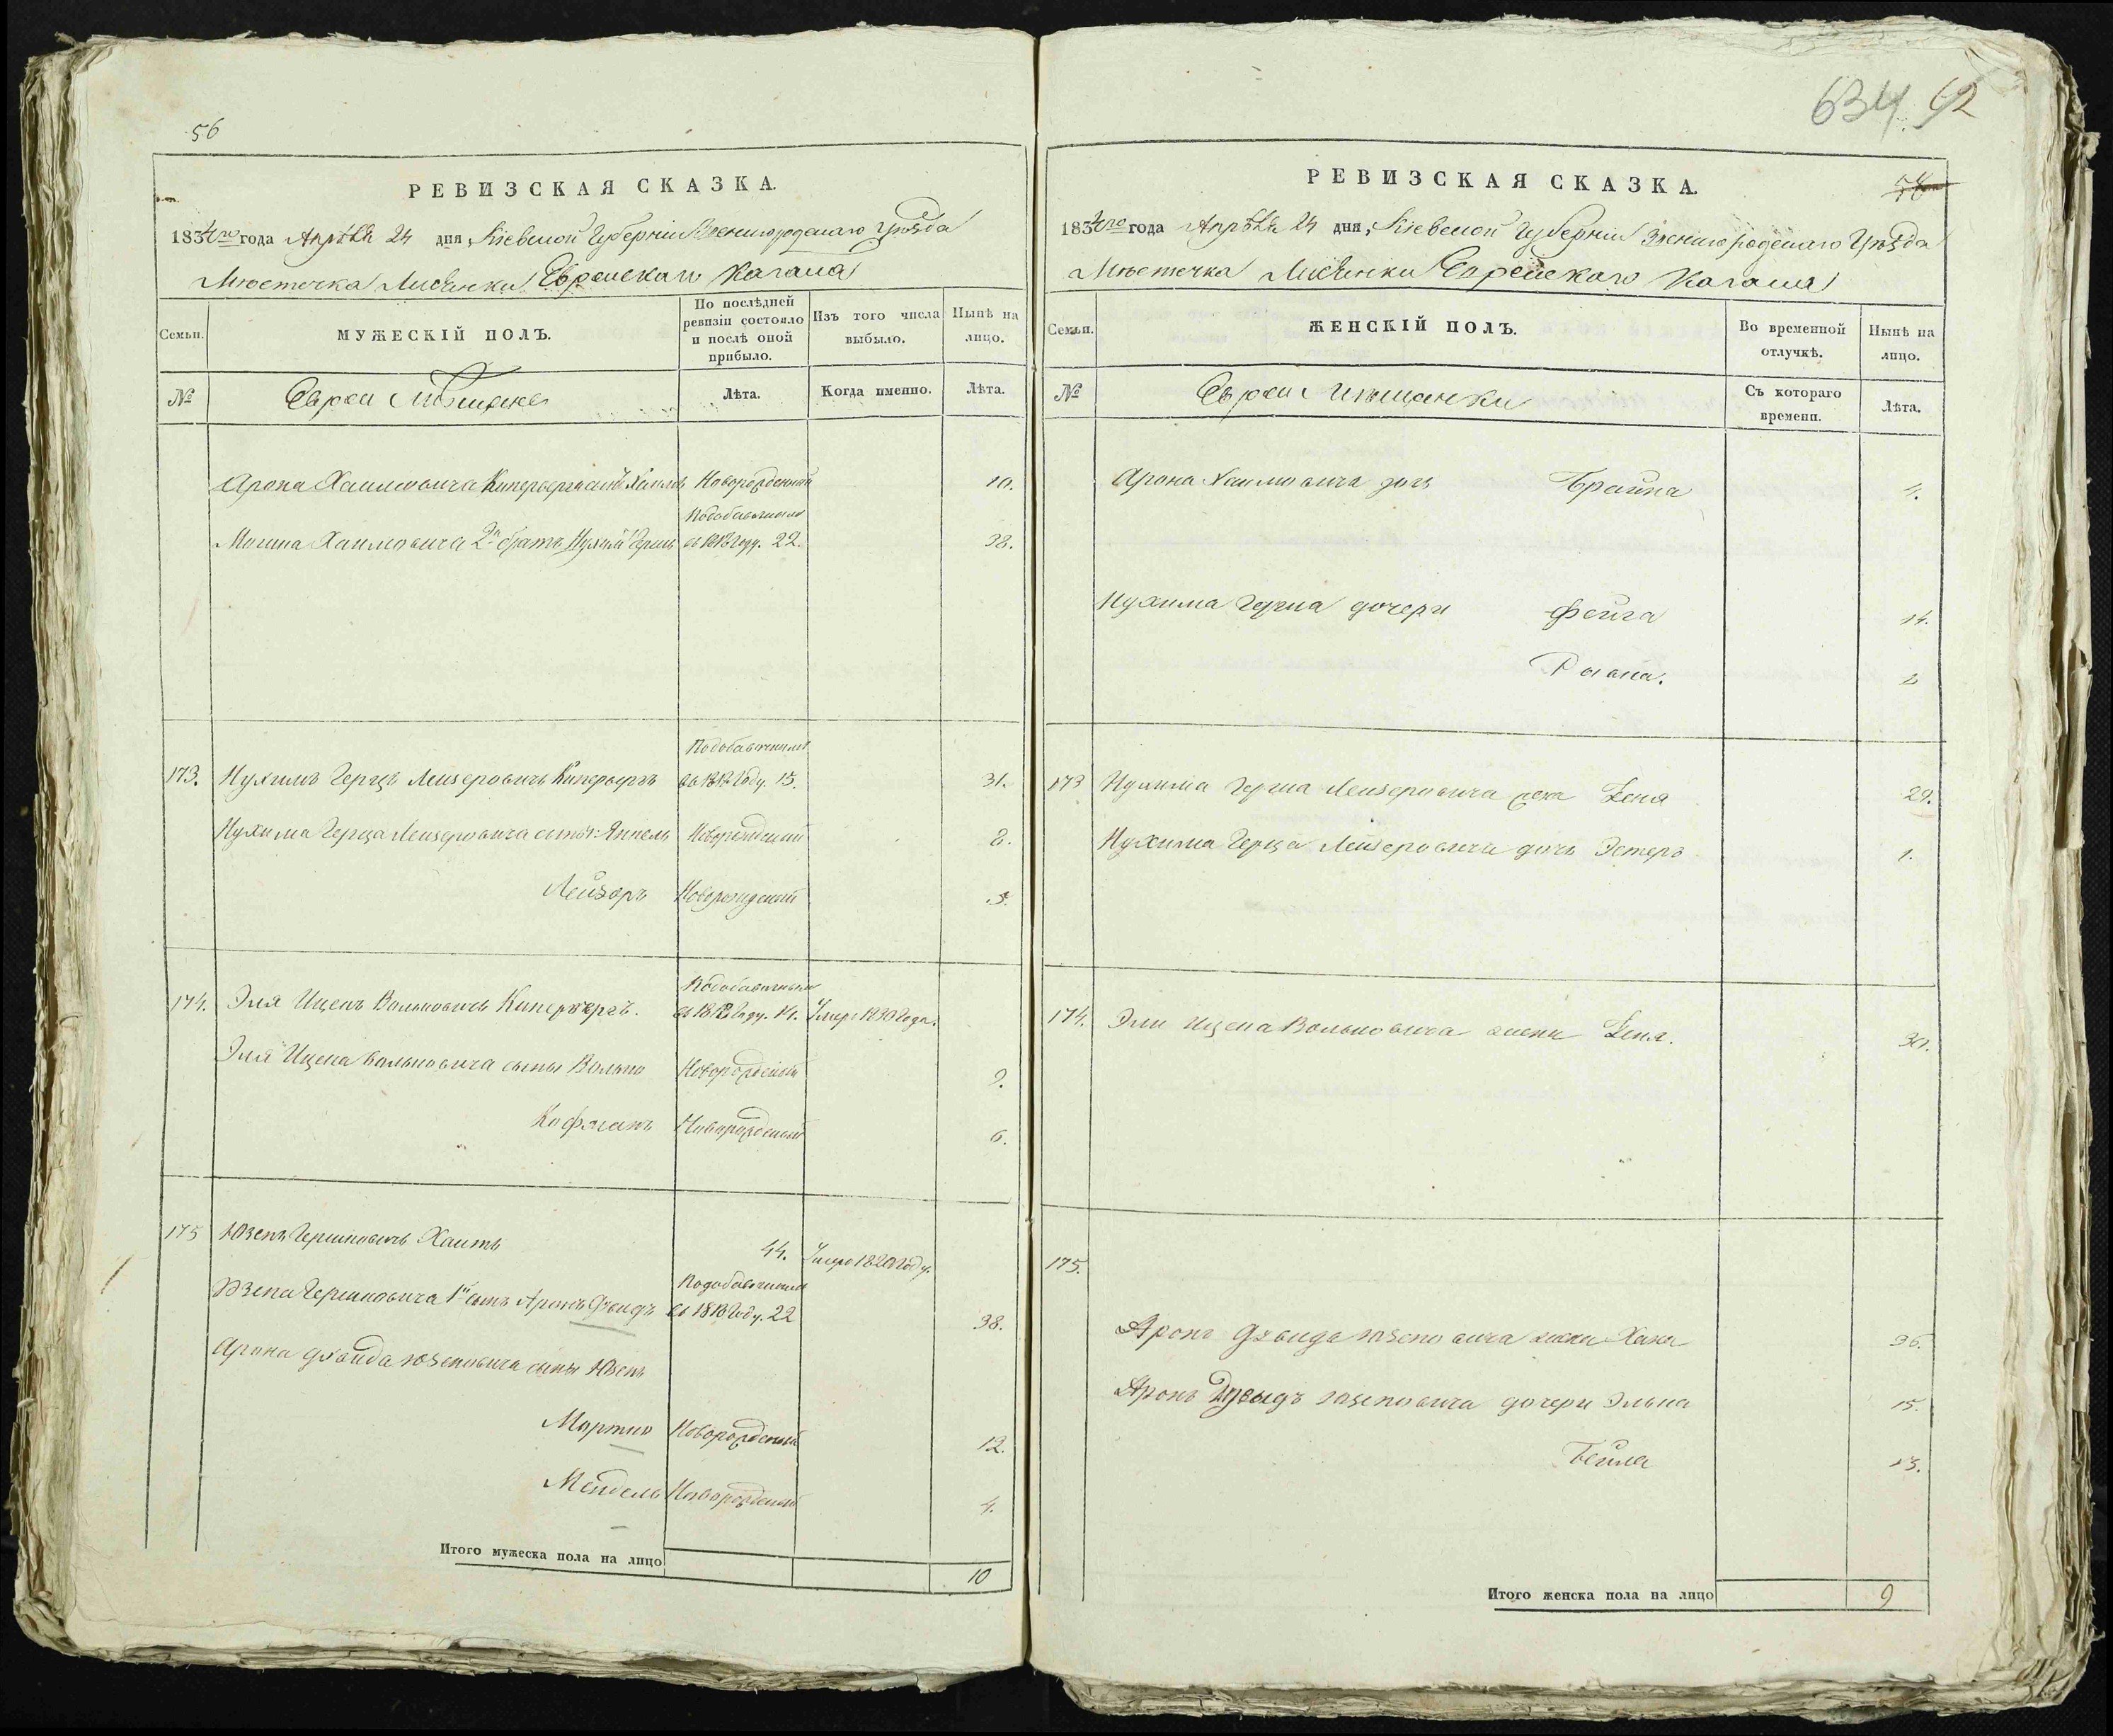 56
РЕВИЗСКАЯ СКАЗКА.
1834го года Апрѣля 24 дня, Кіевской Губерніи Звенигородскаго Уѣзда
Мѣстечка Лисянки Еврейскаго Кагала
Семьи.
МУЖЕСКІЙ ПОЛЪ.
По послѣдней ревизіи состояло и послѣ оной прибыло.
Изъ того числа выбыло.
Нынѣ на лицо.
№
Евреи Мѣщане
Лѣта.
Когда именно.
Лѣта.
Арона Хаимовича Кипербергъ сынъ Хаимъ Новорожденный 10.
Подобавочнымъ
Хаимовича 2й братъ Нухимъ Герцъ въ 1818 году. 22. 38.
Подобавочнымъ
173. Нухимъ Герцъ Лейзеровичъ Кипербергъ въ 1818 Году. 15. 31.
Нухима Герца Лейзеровича сынъ 1: Янкель Новорожденный 8.
Лейзоръ Новорожденный 5.
Подобавочнымъ
174. Эля Ицекъ Вольковичъ Кипербергъ. въ 1818 году. 14. Умеръ 1830 Года.
Эля Ицека Вольковича сыны Волько Новорожденный 9.
Кофманъ Новорожденный 6.
175 Юзепъ Гершковичъ Хаитъ 44. Умеръ 1820 Году.
Подобавочнымъ
Юзепа Гершковича 1й сынъ Аронъ Дувидъ въ 1818 Году. 22 38.
Арона Дувида Юзеповича сыны Юзепъ
Мортко Новорожденный 12.
Мендель Новорожденный 4.
Итого мужеска пола на лицо 10
634 62
58
РЕВИЗСКАЯ СКАЗКА.
1834го года Апрѣля 24 дня, Кіевской Губерніи Звенигородскаго Уѣзда
Мѣстечка Лисянки Еврейскаго Кагала
Семьи.
ЖЕНСКІЙ ПОЛЪ.
Во временной отлучкѣ.
Нынѣ на лицо.
№
Евреи Мѣщанки
Съ котораго времени.
Лѣта.
Арона Хаимовича дочь Брайна 4.
Нухима Герца дочери Фейга 14.
Ривка. 2
173 Нухима Герца Лейзеровича жена Хеня 29.
Нухима Герца Лейзеровича дочь Эстеръ 1.
174. Эли Ицека Вольковича жена Хеня. 30.
175.
Аронъ Дувида Юзеповича жена Хана 36.
Аронъ Дувыдъ Юзеповича дочери Элька 15.
Бейла 13.
Итого женска пола на лицо 9